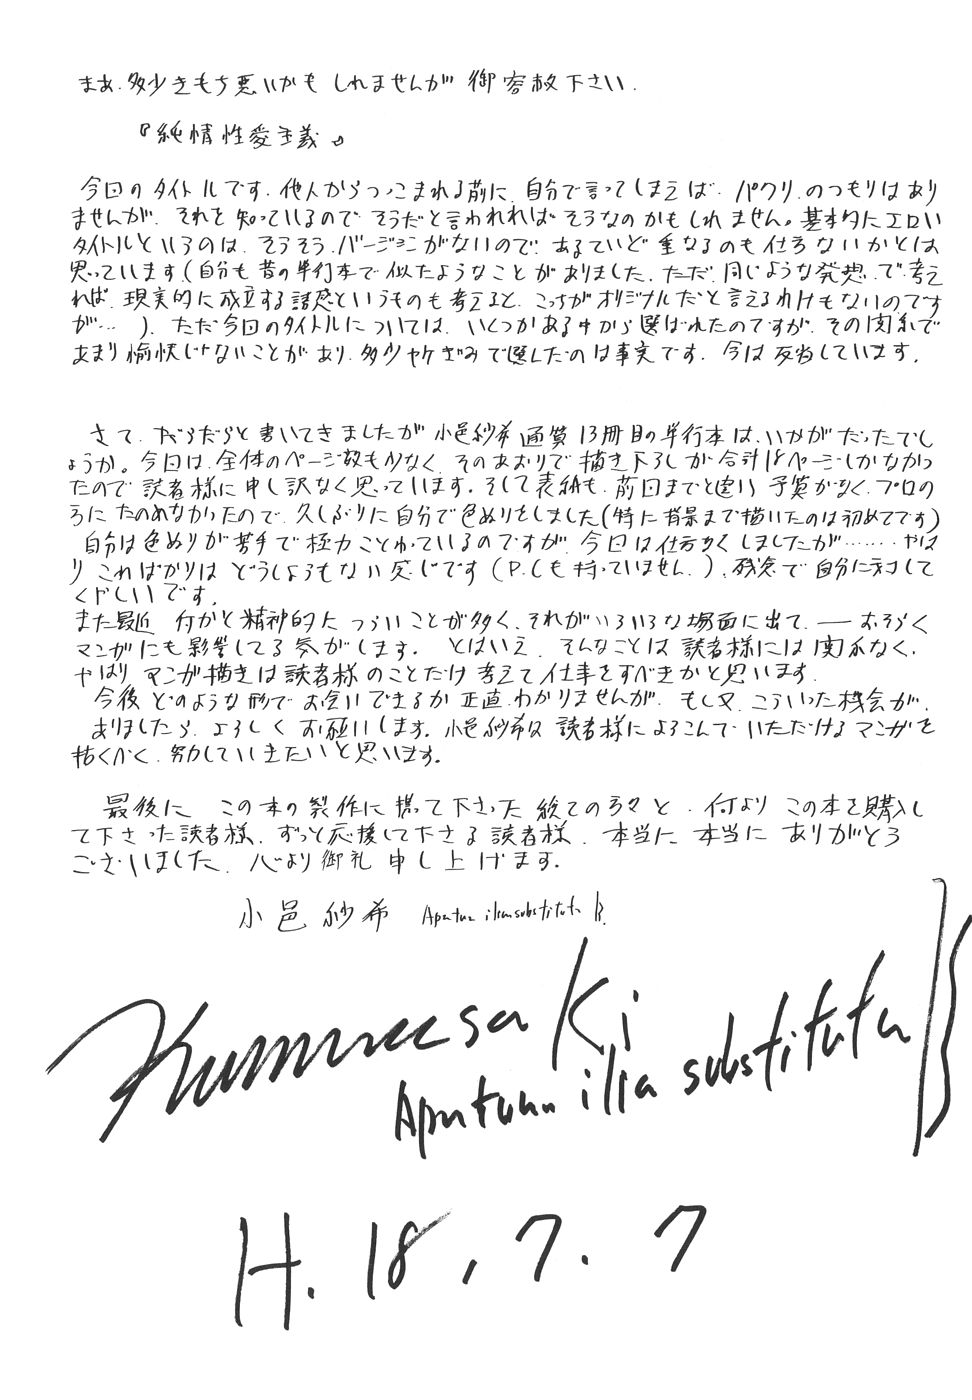 まあ、多少きもち悪いかもしれませんが御容赦下さい。
『純情性愛主義』
今回のタイトルです。他人からつっこまれる前に、自分で言ってしまえば、パクリ、のつもりはあり
ませんが、それを知っているのでそうだと言われればそうなのかもしれません。基本的にエロい
タイトルというのは、そうそうバージョンがないので、あるていど重なるのも仕方ないかとは
思っています(自分も昔の単行本で似たようなことがありました、ただ、同じような発想、で考え
れば、現実的に成立する語感というものも考えると、こっちがオリジナルだと言えるわけもないのです
が…)、ただ今回のタイトルについては、いくつかある中から選ばれたのですが、その関係で
あまり愉快じゃないことがあり、多少ヤケぎみで選んだのは事実です、今は反省しています。
さて、だらだらと書いてきましたが小邑紗希通算13冊目の単行本は、いかがだったでし
ょうか。今回は、全体のページ数も少なく、そのあおりで描き下ろしが合計18ページしかなかっ
たので読者様に申し訳なく思っています。そして表紙も、前回までと違い予算がなく、プロの
方にたのめなかったので、久しぶりに自分で色ぬりをしました(特に背景まで描いたのは初めてです)
自分は色ぬりが苦手で極力ことわっているのですが、今回は仕方なくしましたが………やは
りこればかりはどうしょうもない感じです(P.Cも持っていません、)、残念で自分に対して
くやしいです。
また最近何かと精神的につらいことが多く、それがいろいろな場面に出て、―おそらく
マンガにも影響してる気がします。とはいえ、そんなことは読者様には関係なく、
やはりマンガ描きは読者様のことだけ考えて仕事をすべきかと思います。
今後どのような形でお会いできるか正直わかりませんが、もし又、こういった機会が、
ありましたら、よろしくお願いします。小邑紗希は読者様によろこんでいただけるマンガを
描くべく、努力していきたいと思います。
最後にこの本の製作に携って下さった総ての方々と、何よりこの本を購入し
て下さった読者様、ずっと応援して下さる読者様、本当に本当にありがとう
ございました、心より御礼申し上げます。
小邑紗希 Apatura ilia substituta B.
Apatura ilia substituta B
H.18,7.7